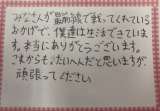 みなさんが最前線で戦ってくれている
おかげで、僕達は生活できていま
す。本当にありがとうございます。
これからも、たいへんだと思いますが、
頑張ってください